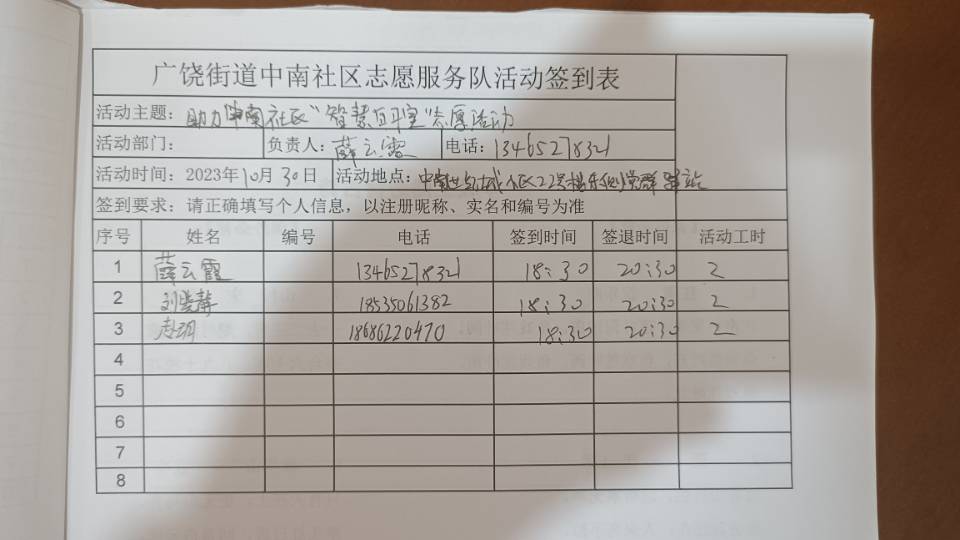 广饶街道中南社区志愿服务队活动签到表
活动主题：助力中南社区“智慧自习室”志愿活动
活动部门： 负责人：薛云霞 电话：13465278321
活动时间：2023年10月30日 活动地点：中南世纪城小区22号楼东侧党群驿站
签到要求：请正确填写个人信息，以注册昵称、实名和编号为准
序号 姓名 编号 电话 签到时间 签退时间 活动工时
1 薛云霞 13465278321 18:30 20:30 2
2 刘晓静 18535061382 18:30 20:30 2
3 玥 18686220470 18:30 20:30 2
4
5
6
7
8